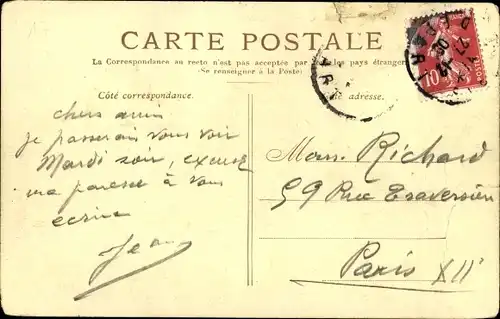 CARTE POSTALE
La Correspondance au recto n'est pas acceptée par les pays étrangers
(Se renseigner à la Poste)
Côté correspondance.
de adresse.
chers amis
je passerais vous voir
Mardi soir, excusez
ma paresse à vous
écrire
Jean
Mons. Richard
59 Rue Traversière
Paris XIIe
10